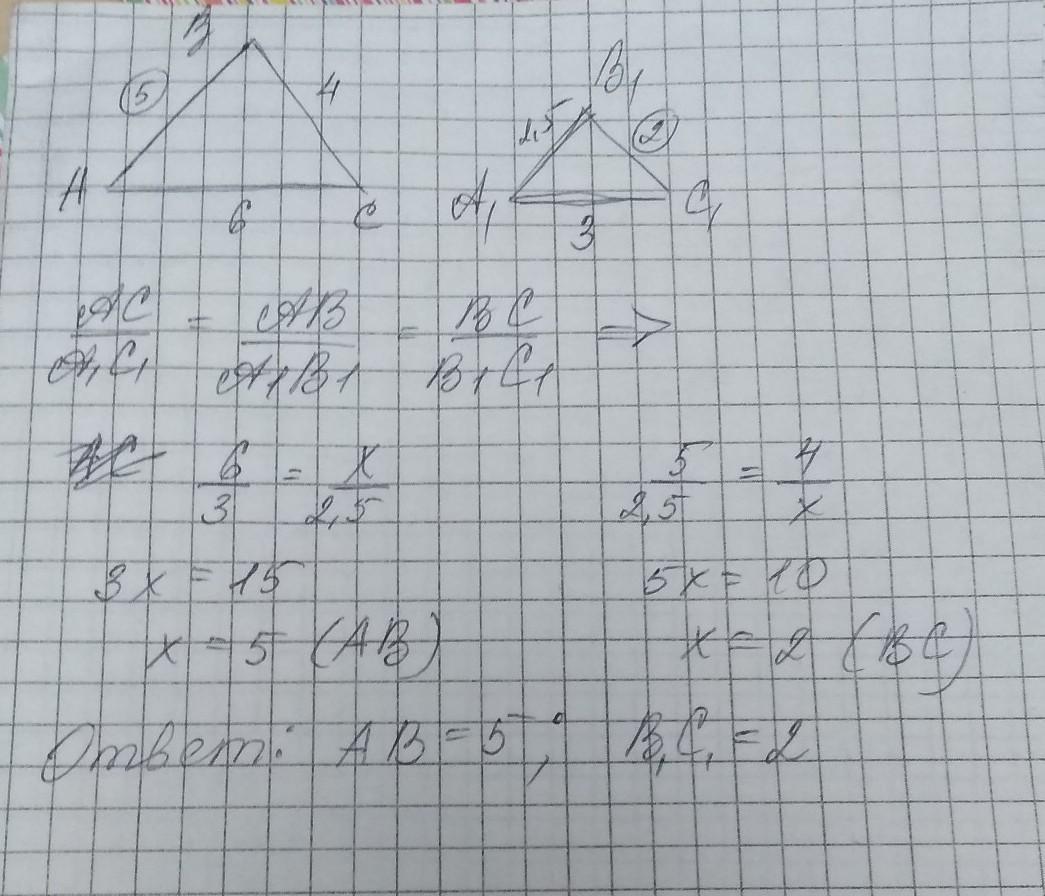 B B₁
5 4 2,5 2
A 6 C A₁ 3 C₁
AC/A₁C₁ = AB/A₁B₁ = BC/B₁C₁ =>
6/3 = x/2,5 5/2,5 = 4/x
3x = 15 5x = 10
x = 5 (AB) x = 2 (BC)
Ответ: AB = 5 ; B₁C₁ = 2